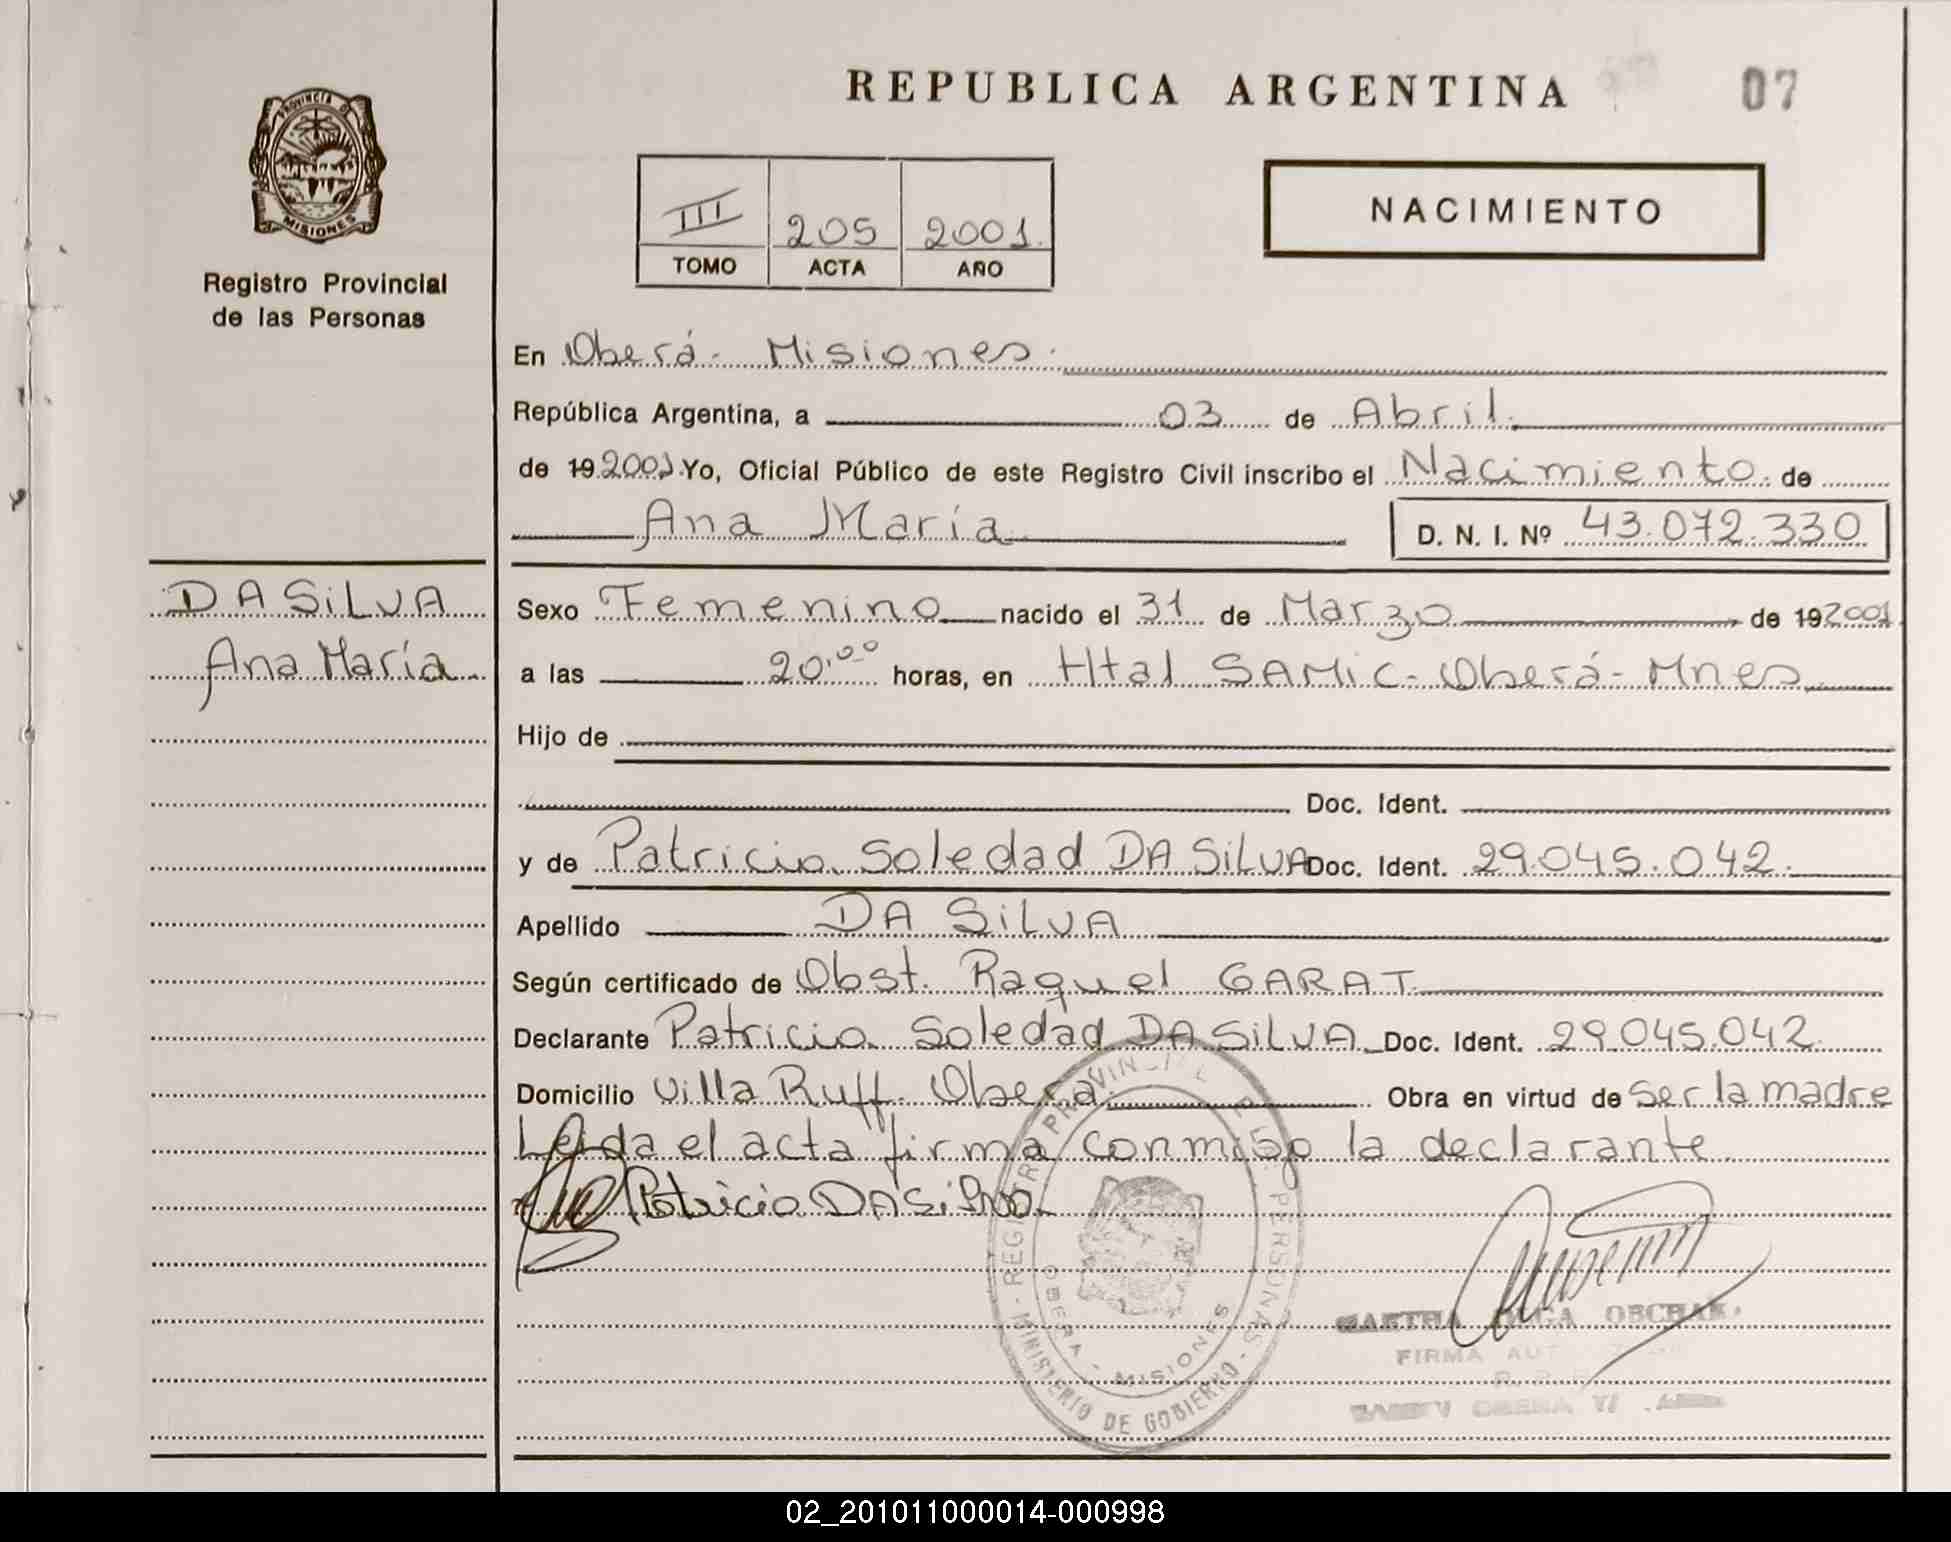 REPUBLICA ARGENTINA
07
PROVINCIA D
MISIONES
Registro Provincial
de las Personas
III 205 2001.
TOMO ACTA AÑO
NACIMIENTO
En Oberá - Misiones.
República Argentina, a 03 de Abril.
de 19 2001 Yo, Oficial Público de este Registro Civil inscribo el Nacimiento. de
Ana María D. N. I. Nº 43.072.330
DA SiLVA
Ana María.
Sexo Femenino nacido el 31 de Marzo de 19 2001
a las 20:00 horas, en Htal SAMiC - Oberá - Mnes
Hijo de
Doc. Ident.
y de Patricia Soledad DA SiLVA Doc. Ident. 29.045.042.
Apellido DA SiLVA
Según certificado de Obst. Raquel GARAT
Declarante Patricia Soledad DA SiLVA Doc. Ident. 29.045.042
Domicilio Villa Ruff. Oberá Obra en virtud de ser la madre
Leida el acta firma conmigo la declarante
Patricia DA Silva
REGISTRO PROVINCIAL DE LAS PERSONAS
OBERA - MISIONES
MINISTERIO DE GOBIERNO
MARTHA OLGA
FIRMA
02_201011000014-000998